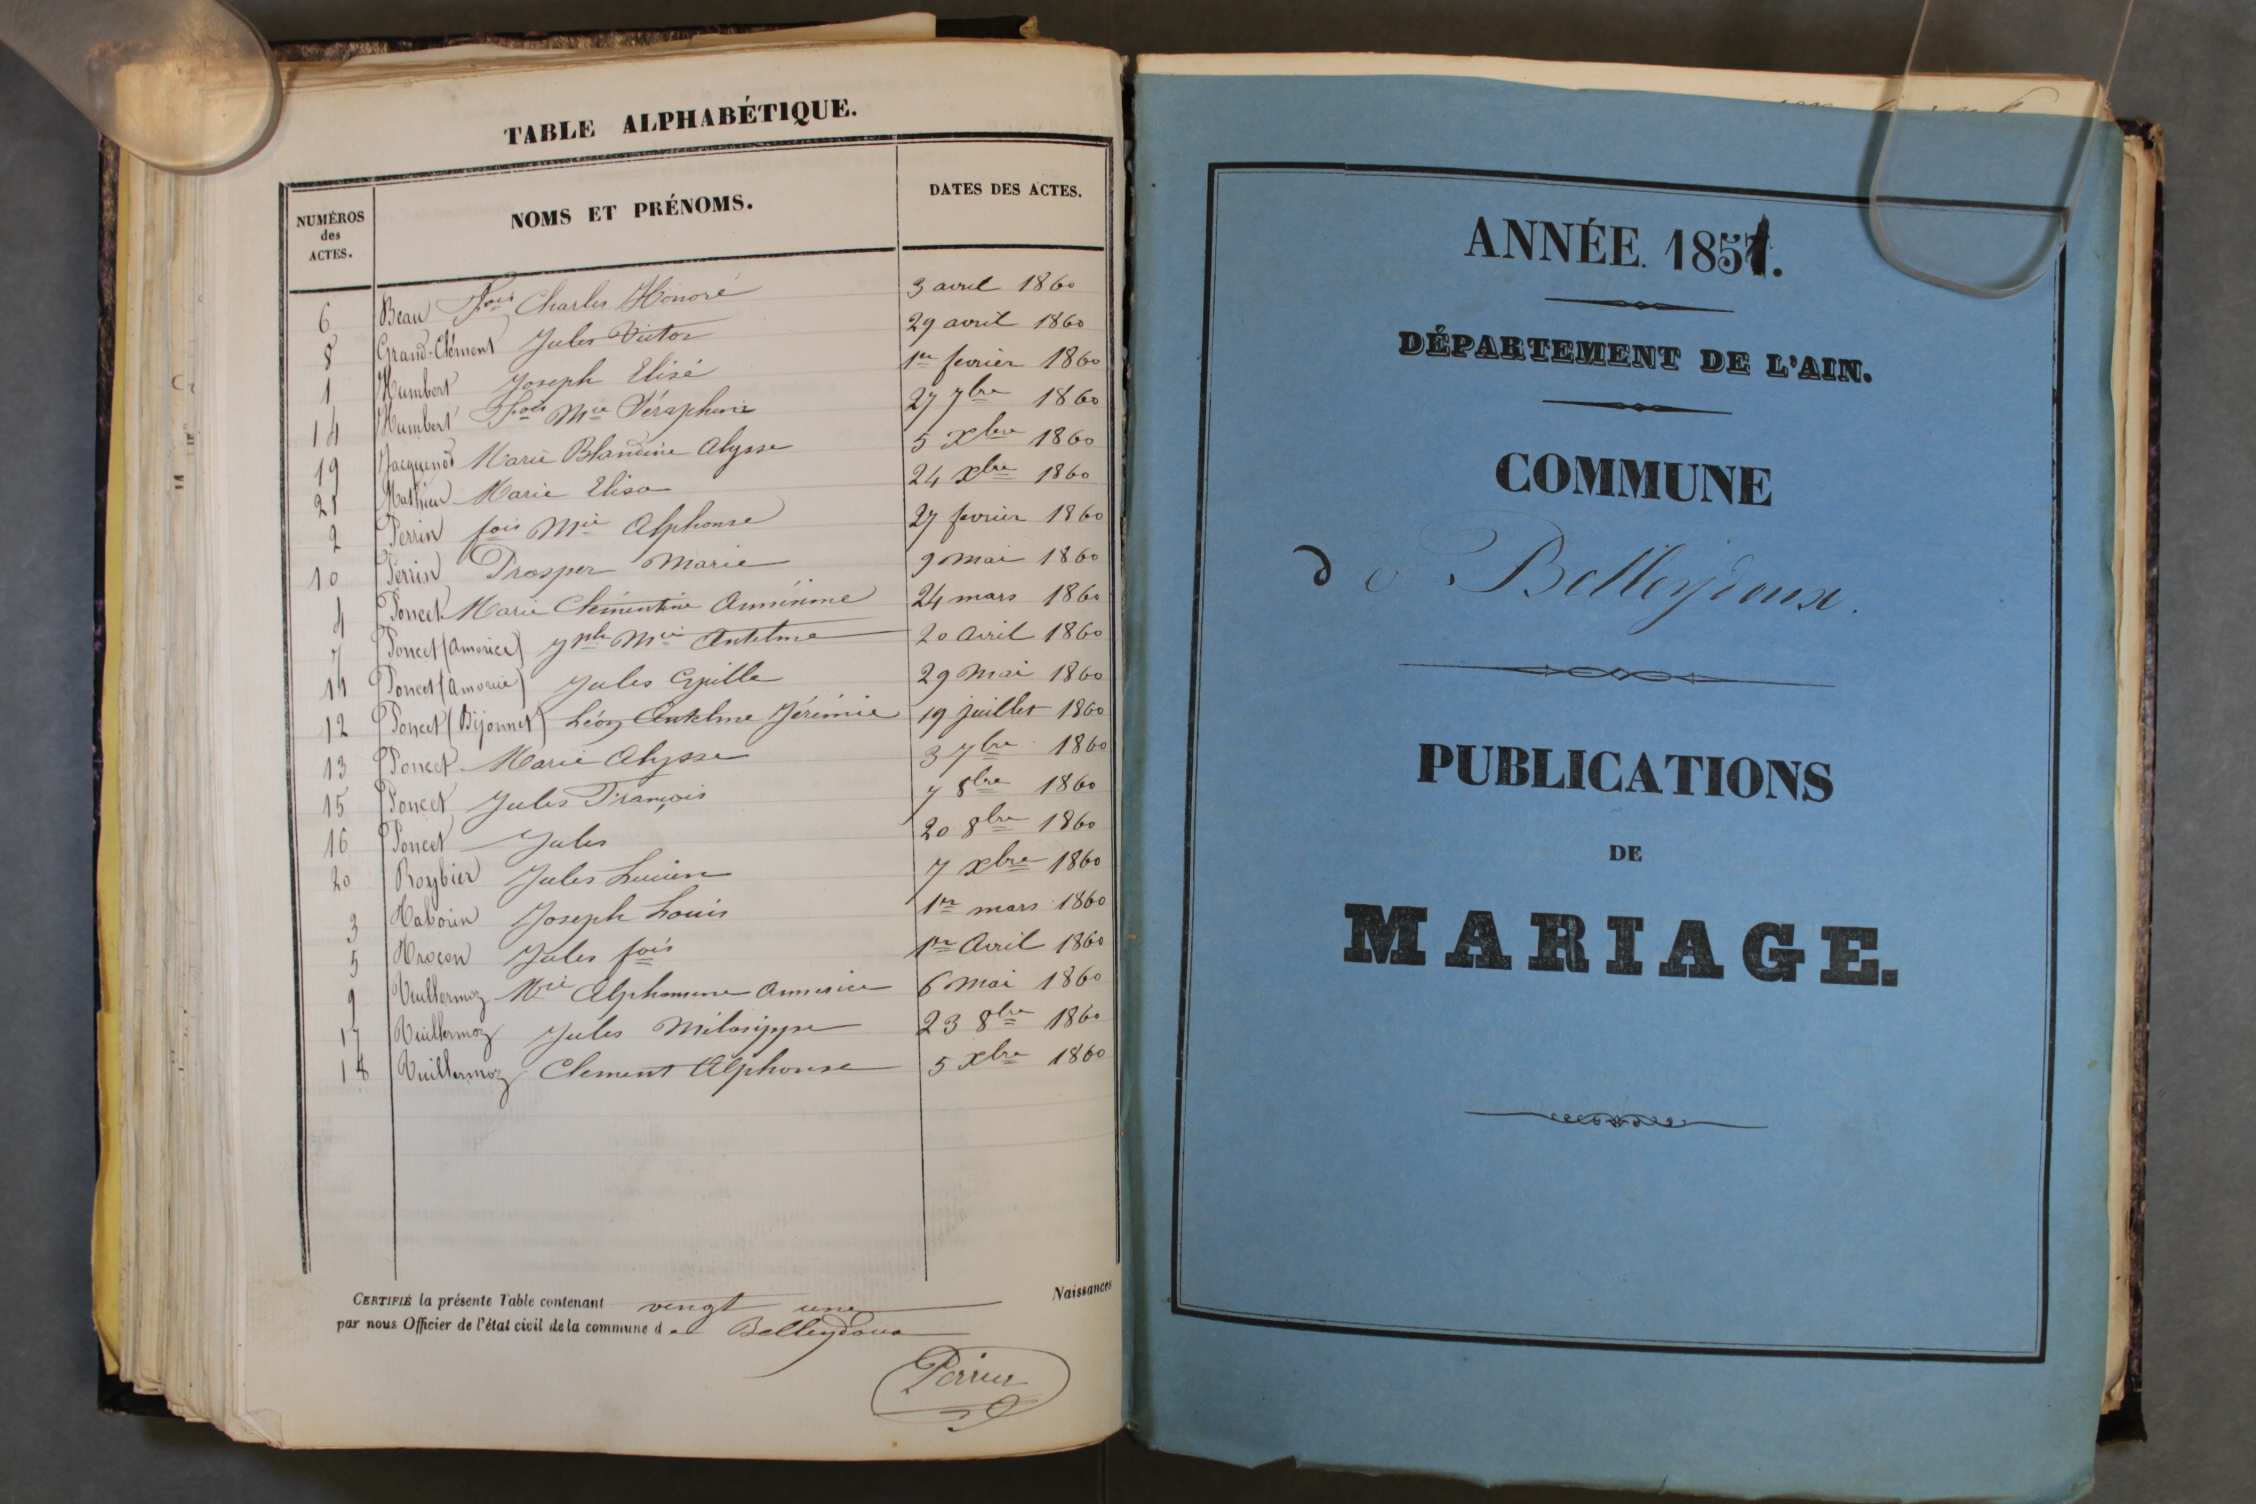 TABLE ALPHABÉTIQUE.
NUMÉROS des ACTES. NOMS ET PRÉNOMS. DATES DES ACTES.
6 Beau fois Charles Honoré 3 avril 1860
8 Grand-Clément Jules Victor 29 avril 1860
1 Humbert Joseph Elisé 1er fevrier 1860
14 Humbert fois Mie Séraphine 27 7bre 1860
19 Jacquenod Marie Blandine Alysse 5 Xbre 1860
21 Mathieu Marie Elisa 24 Xbre 1860
2 Perrin fois Mie Alphonse 27 fevrier 1860
10 Perrin Prosper Marie 9 mai 1860
4 Poncet Marie Clémentine 24 mars 1860
7 Poncet (Amorice) Jph Mie Antelme 20 avril 1860
11 Poncet (Amorice) Jules Cyrille 29 mai 1860
12 Poncet (Bijonnet) Léon Antelme Jérémie 19 juillet 1860
13 Poncet Marie Alysse 3 7bre 1860
15 Poncet Jules François 7 8bre 1860
16 Poncet Jules 20 8bre 1860
20 Roybier Jules Lucien 7 Xbre 1860
3 Joseph Louis 1er mars 1860
5 Jules fois 1er Avril 1860
9 Vuillermoz Mie Alphonsine 6 mai 1860
17 Vuillermoz Jules 23 8bre 1860
18 Vuillermoz Clement Alphonse 5 Xbre 1860
CERTIFIÉ la présente Table contenant vingt une Naissances
par nous Officier de l'état civil de la commune de Belleydoux
Perrin
ANNÉE 1851.
DÉPARTEMENT DE L'AIN.
COMMUNE
de Belleydoux.
PUBLICATIONS
DE
MARIAGE.